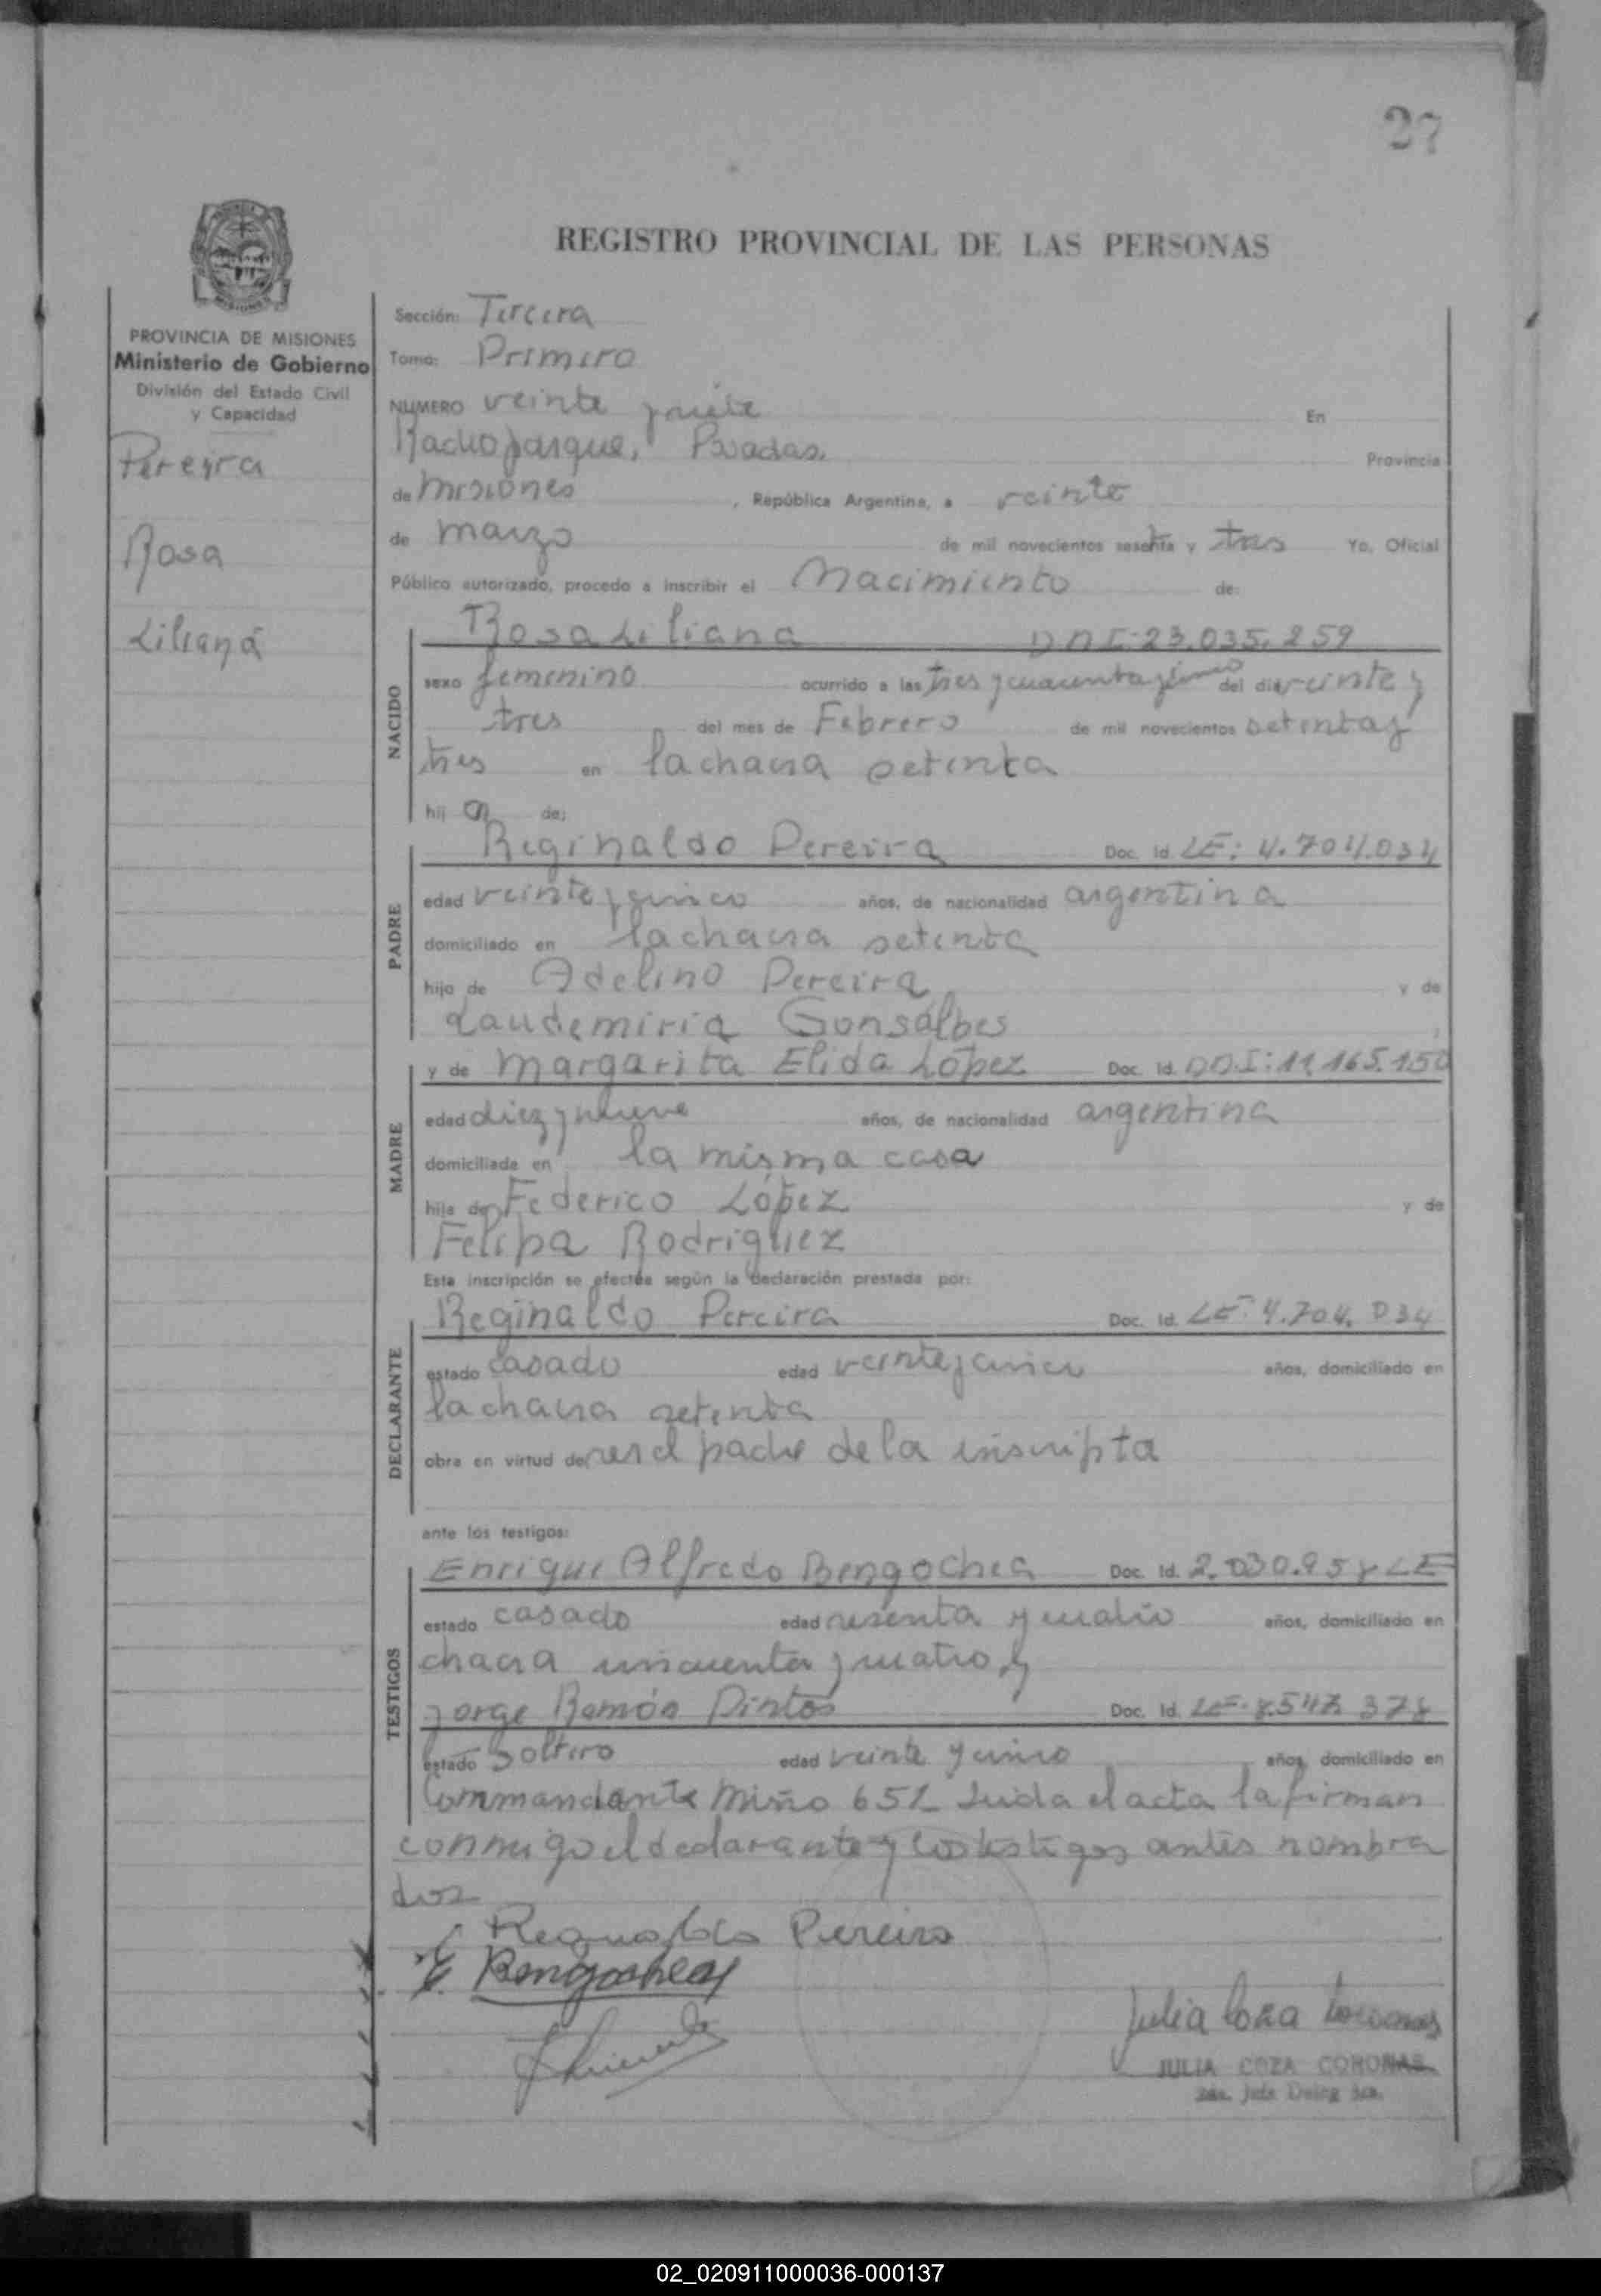 27
REGISTRO PROVINCIAL DE LAS PERSONAS
PROVINCIA DE MISIONES
Ministerio de Gobierno
División del Estado Civil
y Capacidad
Pereira
Rosa
Liliana
Sección: Tercera
Tomo: Primero
NUMERO veinte y siete En
Posadas, Provincia
de Misiones, República Argentina, a veinte
de marzo de mil novecientos sesenta y tres Yo, Oficial
Público autorizado, procedo a inscribir el Nacimiento de:
NACIDO
Rosa Liliana DNI: 23.035.259
sexo femenino ocurrido a las tres y cuarenta y cinco del dia veinte y
tres del mes de Febrero de mil novecientos setenta y
tres en la chacra setenta
hij a de:
PADRE
Reginaldo Pereira Doc. Id. LE: 4.704.034
edad veinte y cinco años, de nacionalidad argentina
domiciliado en la chacra setenta
hijo de Adelino Pereira y de
Laudemiria Gonsálbes
MADRE
y de Margarita Elida López Doc. Id. 11.165.150
edad diez y nueve años, de nacionalidad argentina
domiciliada en la misma casa
hija de Federico López y de
Felipa Rodriguez
Esta inscripción se efectúa según la declaración prestada por:
DECLARANTE
Reginaldo Pereira Doc. Id. LE: 4.704.034
estado casado edad veinte y cinco años, domiciliado en
la chacra setenta
obra en virtud de ser el padre de la inscripta
ante los testigos:
TESTIGOS
Enrique Alfredo Bengochea Doc. Id. 2.030.958 LE
estado casado edad sesenta y cuatro años, domiciliado en
chacra cincuenta y cuatro y
Jorge Ramón Pintos Doc. Id. LE. 8.547.378
estado soltero edad veinte y cinco años, domiciliado en
Commandante Miño 651 Leida el acta la firman
conmigo el declarante y los testigos antes nombra
dos
Reginaldo Pereira
Bengochea
Julia Coza Coronas
JULIA COZA CORONAS
02_020911000036-000137